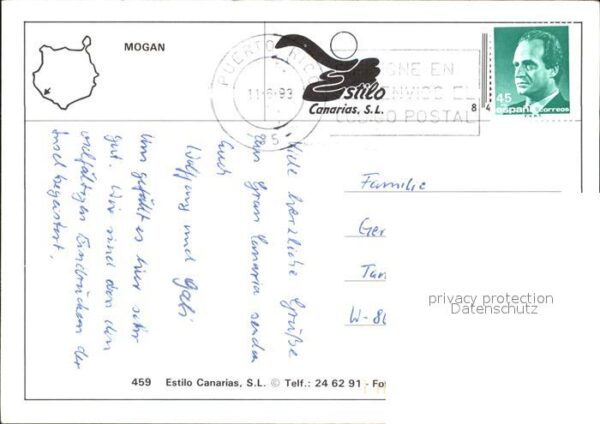 MOGAN
PUERTO RICO
11-8-93
35
Estilo
Canarias, S.L.
NE EN
ENVIOS EL
CODIGO POSTAL
8 4
45
españa correos
Viele herzliche Grüße
von Gran Canaria senden
Euch
Wolfgang und Gabi
Uns gefällt es hier sehr
gut. Wir sind von den
vielfältigen Eindrücken der
Insel begeistert.
Familie
Ger
Tan
W-86
privacy protection
Datenschutz
459 Estilo Canarias, S.L. © Telf.: 24 62 91 - Fo